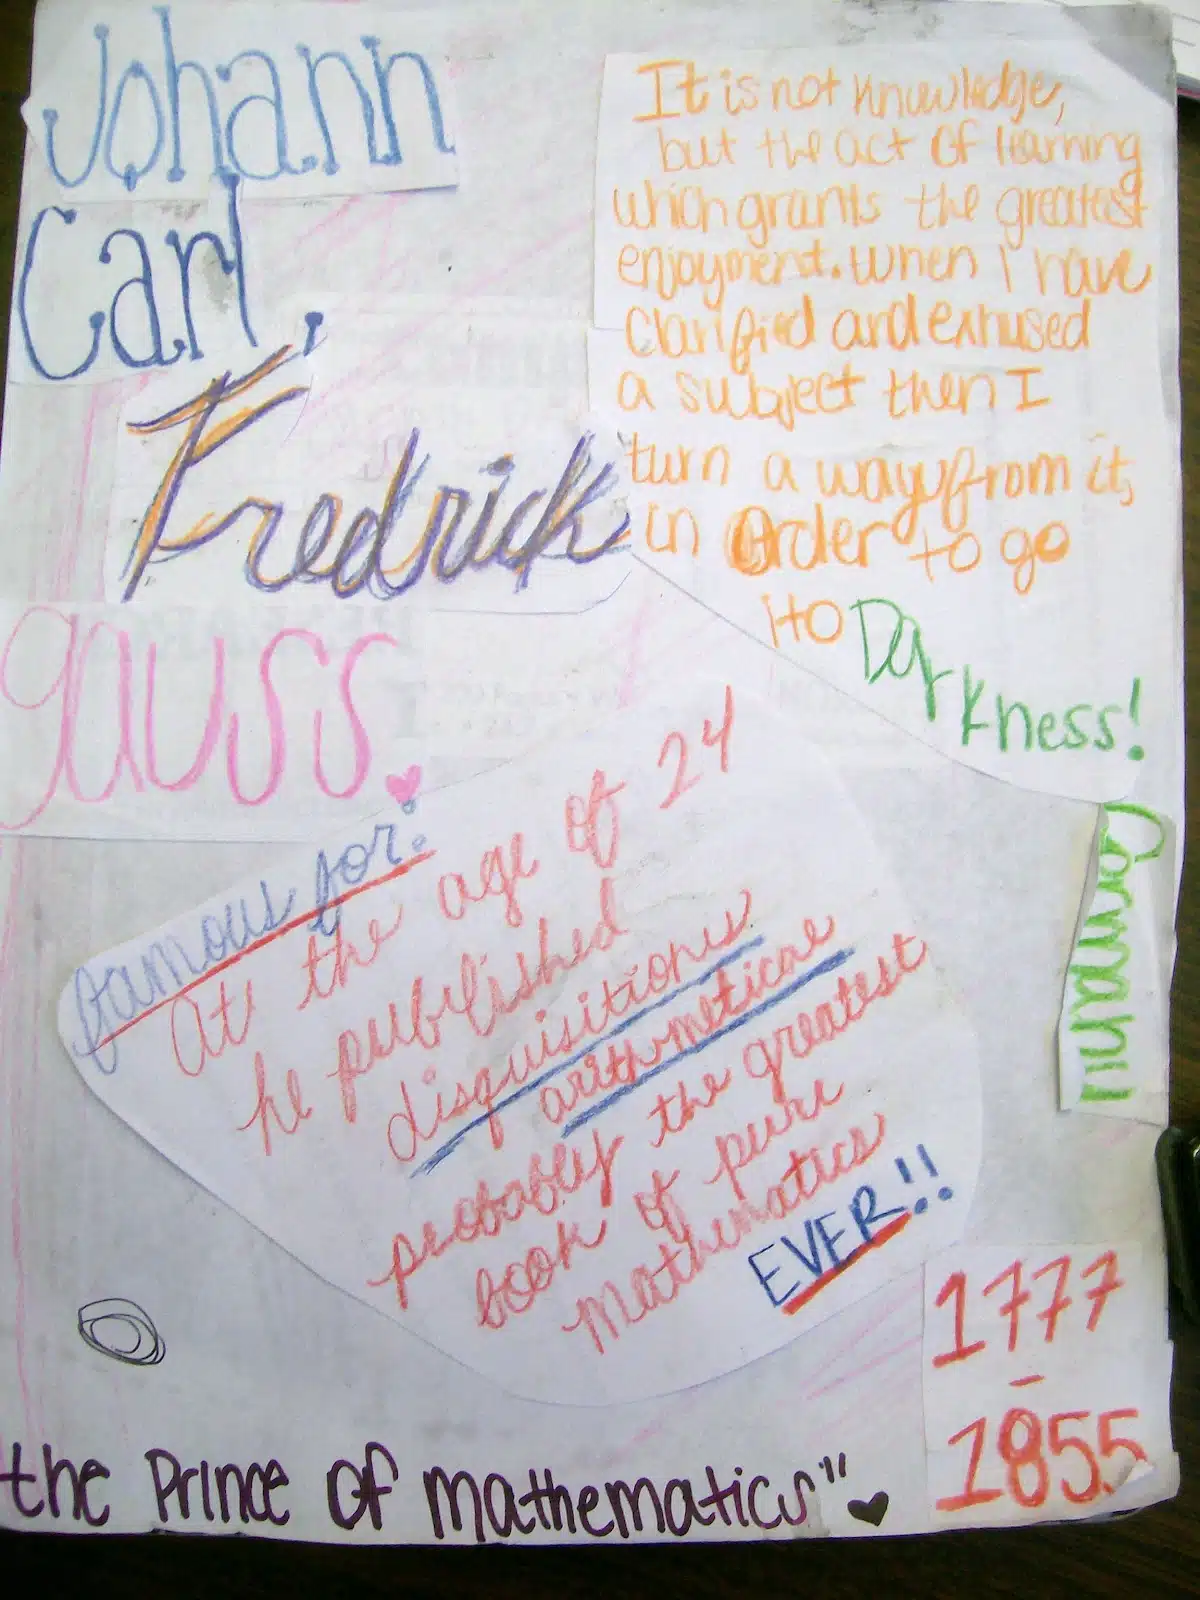 Johann
Carl,
Fredrick
gauss
It is not knowledge,
but the act of learning
which grants the greatest
enjoyment. When I have
Clarified and exhused
a subject then I
turn a way from it,
in Order to go
ito Darkness!
famous for:
at the age of 24
he published
disquisitiones
arithmeticae
probably the greatest
book of pure
mathematics
EVER!!
Germany
1777
-
1855
the Prince of mathematics"